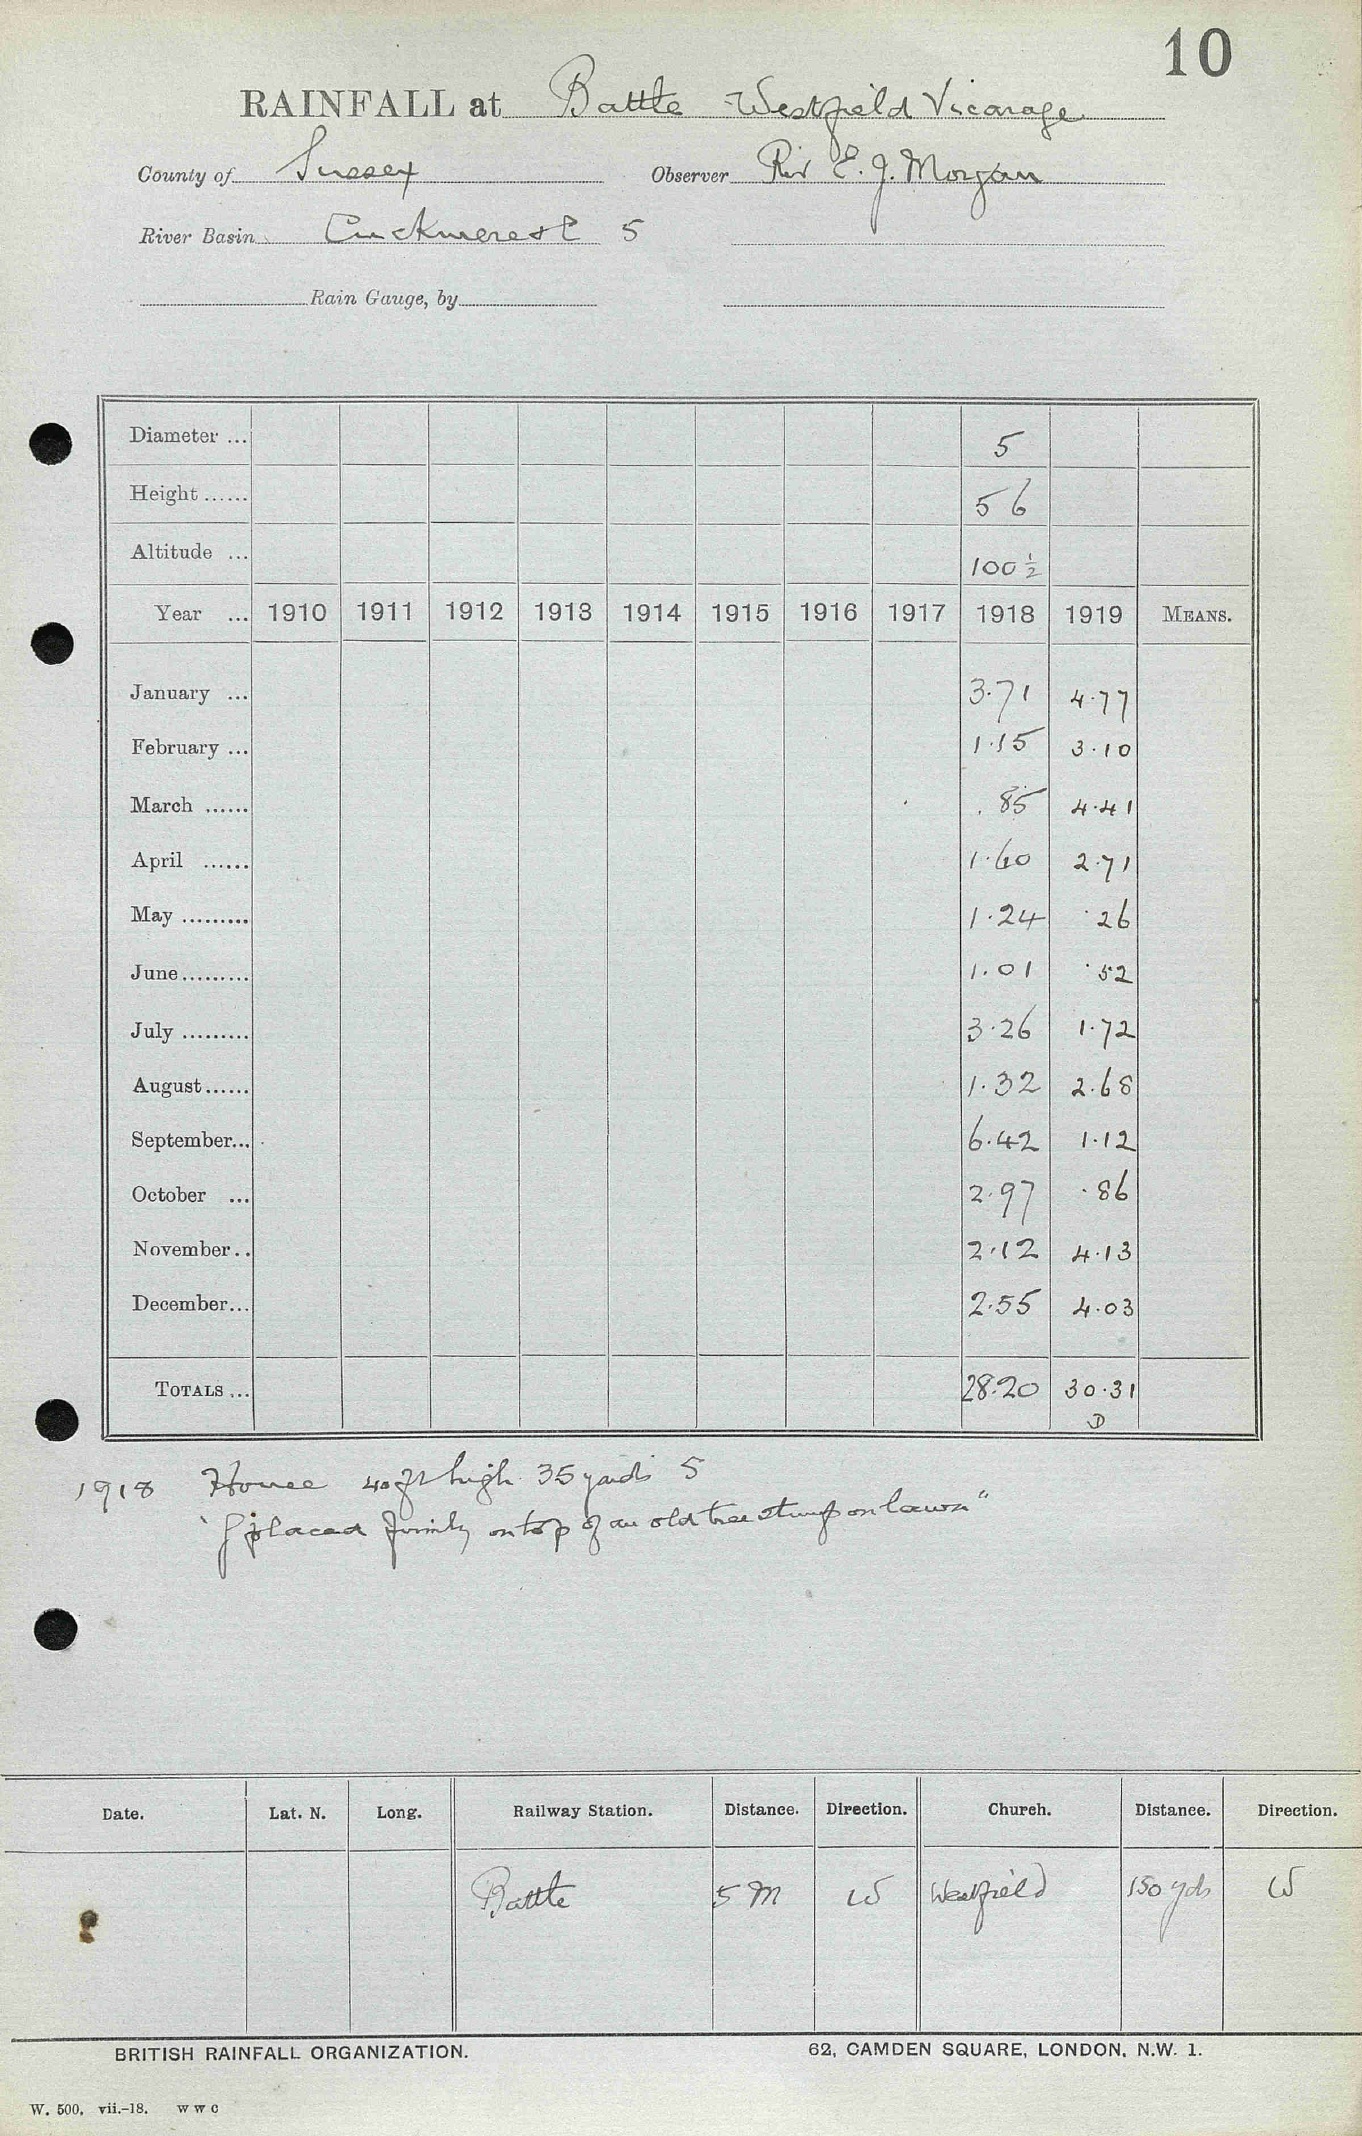 10
RAINFALL at Battle Westfield Vicarage
County of Sussex Observer Rev E. J. Morgan
River Basin Cuckmere & E 5
Rain Gauge, by
Diameter ... 5
Height ...... 56
Altitude ... 100½
Year ... 1910 1911 1912 1913 1914 1915 1916 1917 1918 1919 MEANS.
January ... 3.71 4.77
February ... 1.15 3.10
March ...... .85 4.41
April ...... 1.60 2.71
May ......... 1.24 .26
June ......... 1.01 .52
July ......... 3.26 1.72
August ...... 1.32 2.68
September... 6.42 1.12
October ... 2.97 .86
November.. 2.12 4.13
December... 2.55 4.03
TOTALS ... 28.20 30.31
D
1918 House 40 ft high 35 yards S
"G placed firmly on top of an old tree stump on lawn"
Date. Lat. N. Long. Railway Station. Distance. Direction. Church. Distance. Direction.
Battle 5 m W Westfield 150 yds W
BRITISH RAINFALL ORGANIZATION. 62, CAMDEN SQUARE, LONDON, N.W. 1.
W. 500. vii.-18. W W C